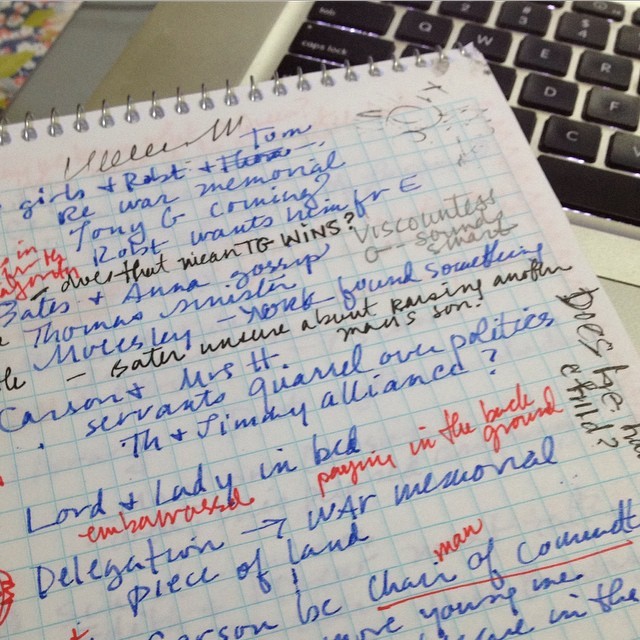 Tom
girls & Robt &
Re war memorial
Tony G coming?
Robt wants him for E
- does that mean TG WINS?
Viscountess
sounds
smart
Bates & Anna gossip
Thomas sinister
Molesley - found something
- Bates unsure about Raising another
man's son!
Carson & Mrs H
servants quarrel over politics
Th & Jimmy alliance?
Does he
child?
Lord & Lady in bed
embarrassed
paying in the back
ground
Delegation → WAr memorial
piece of land
man
Carson be Chair of Committ
young
in the
tab
caps lock
Q
W
E
R
D
F
C
V
#
3
$
4